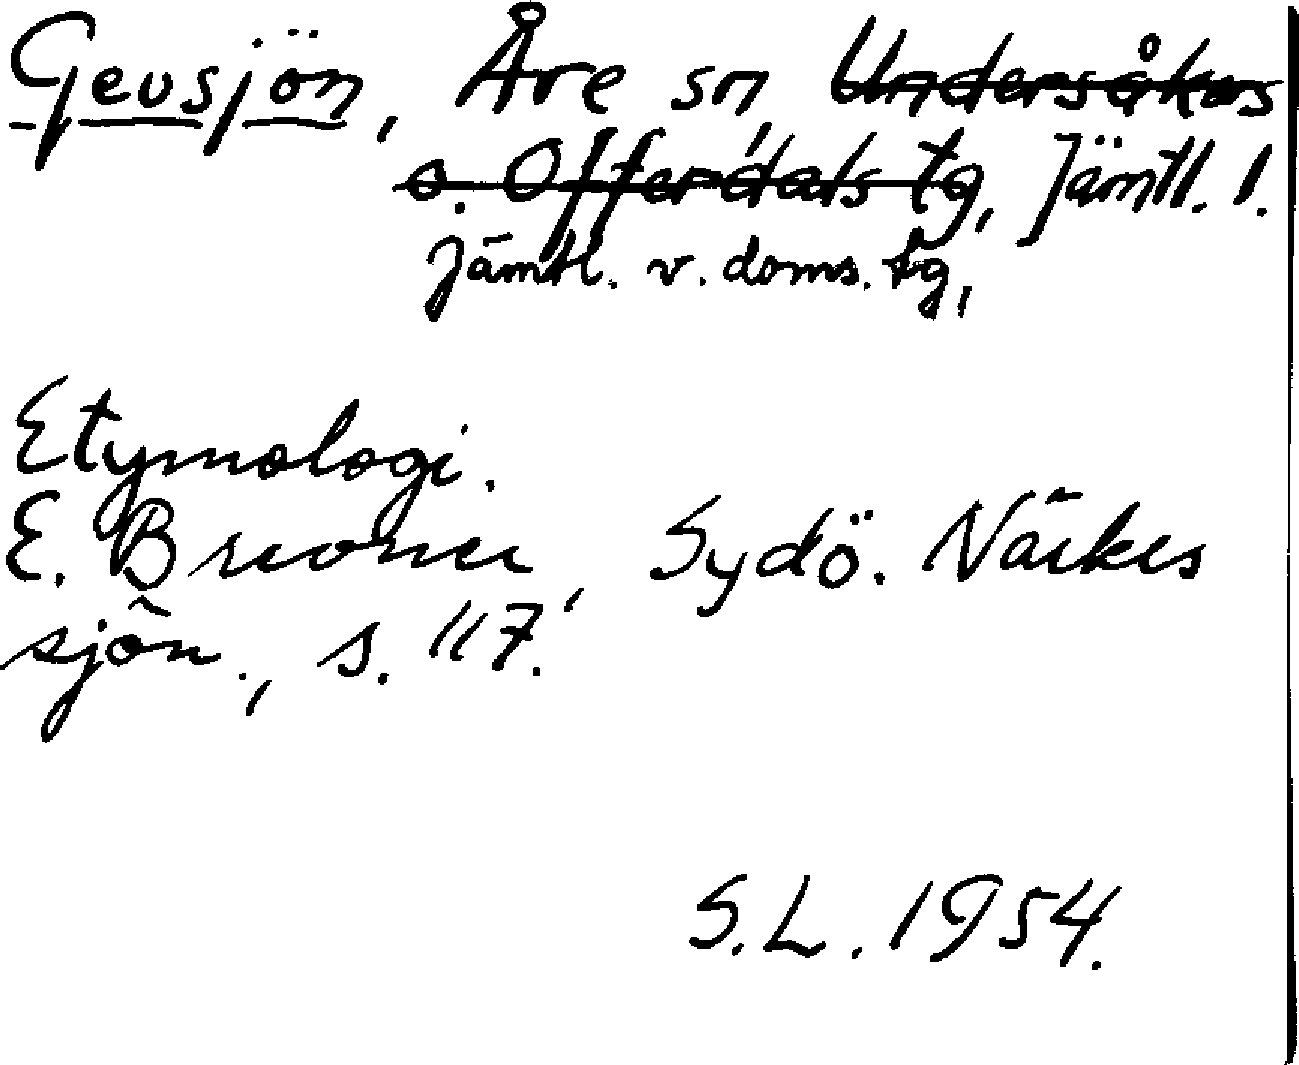 Gevsjön, Åre sn, Undersåkers
o. Offerdals tg, Jämtl. l.
Jämtl. v. doms. tg,
Etymologi.
E. Brevner, Sydö. Närkes
sjön., s. 117.
S.L. 1954.